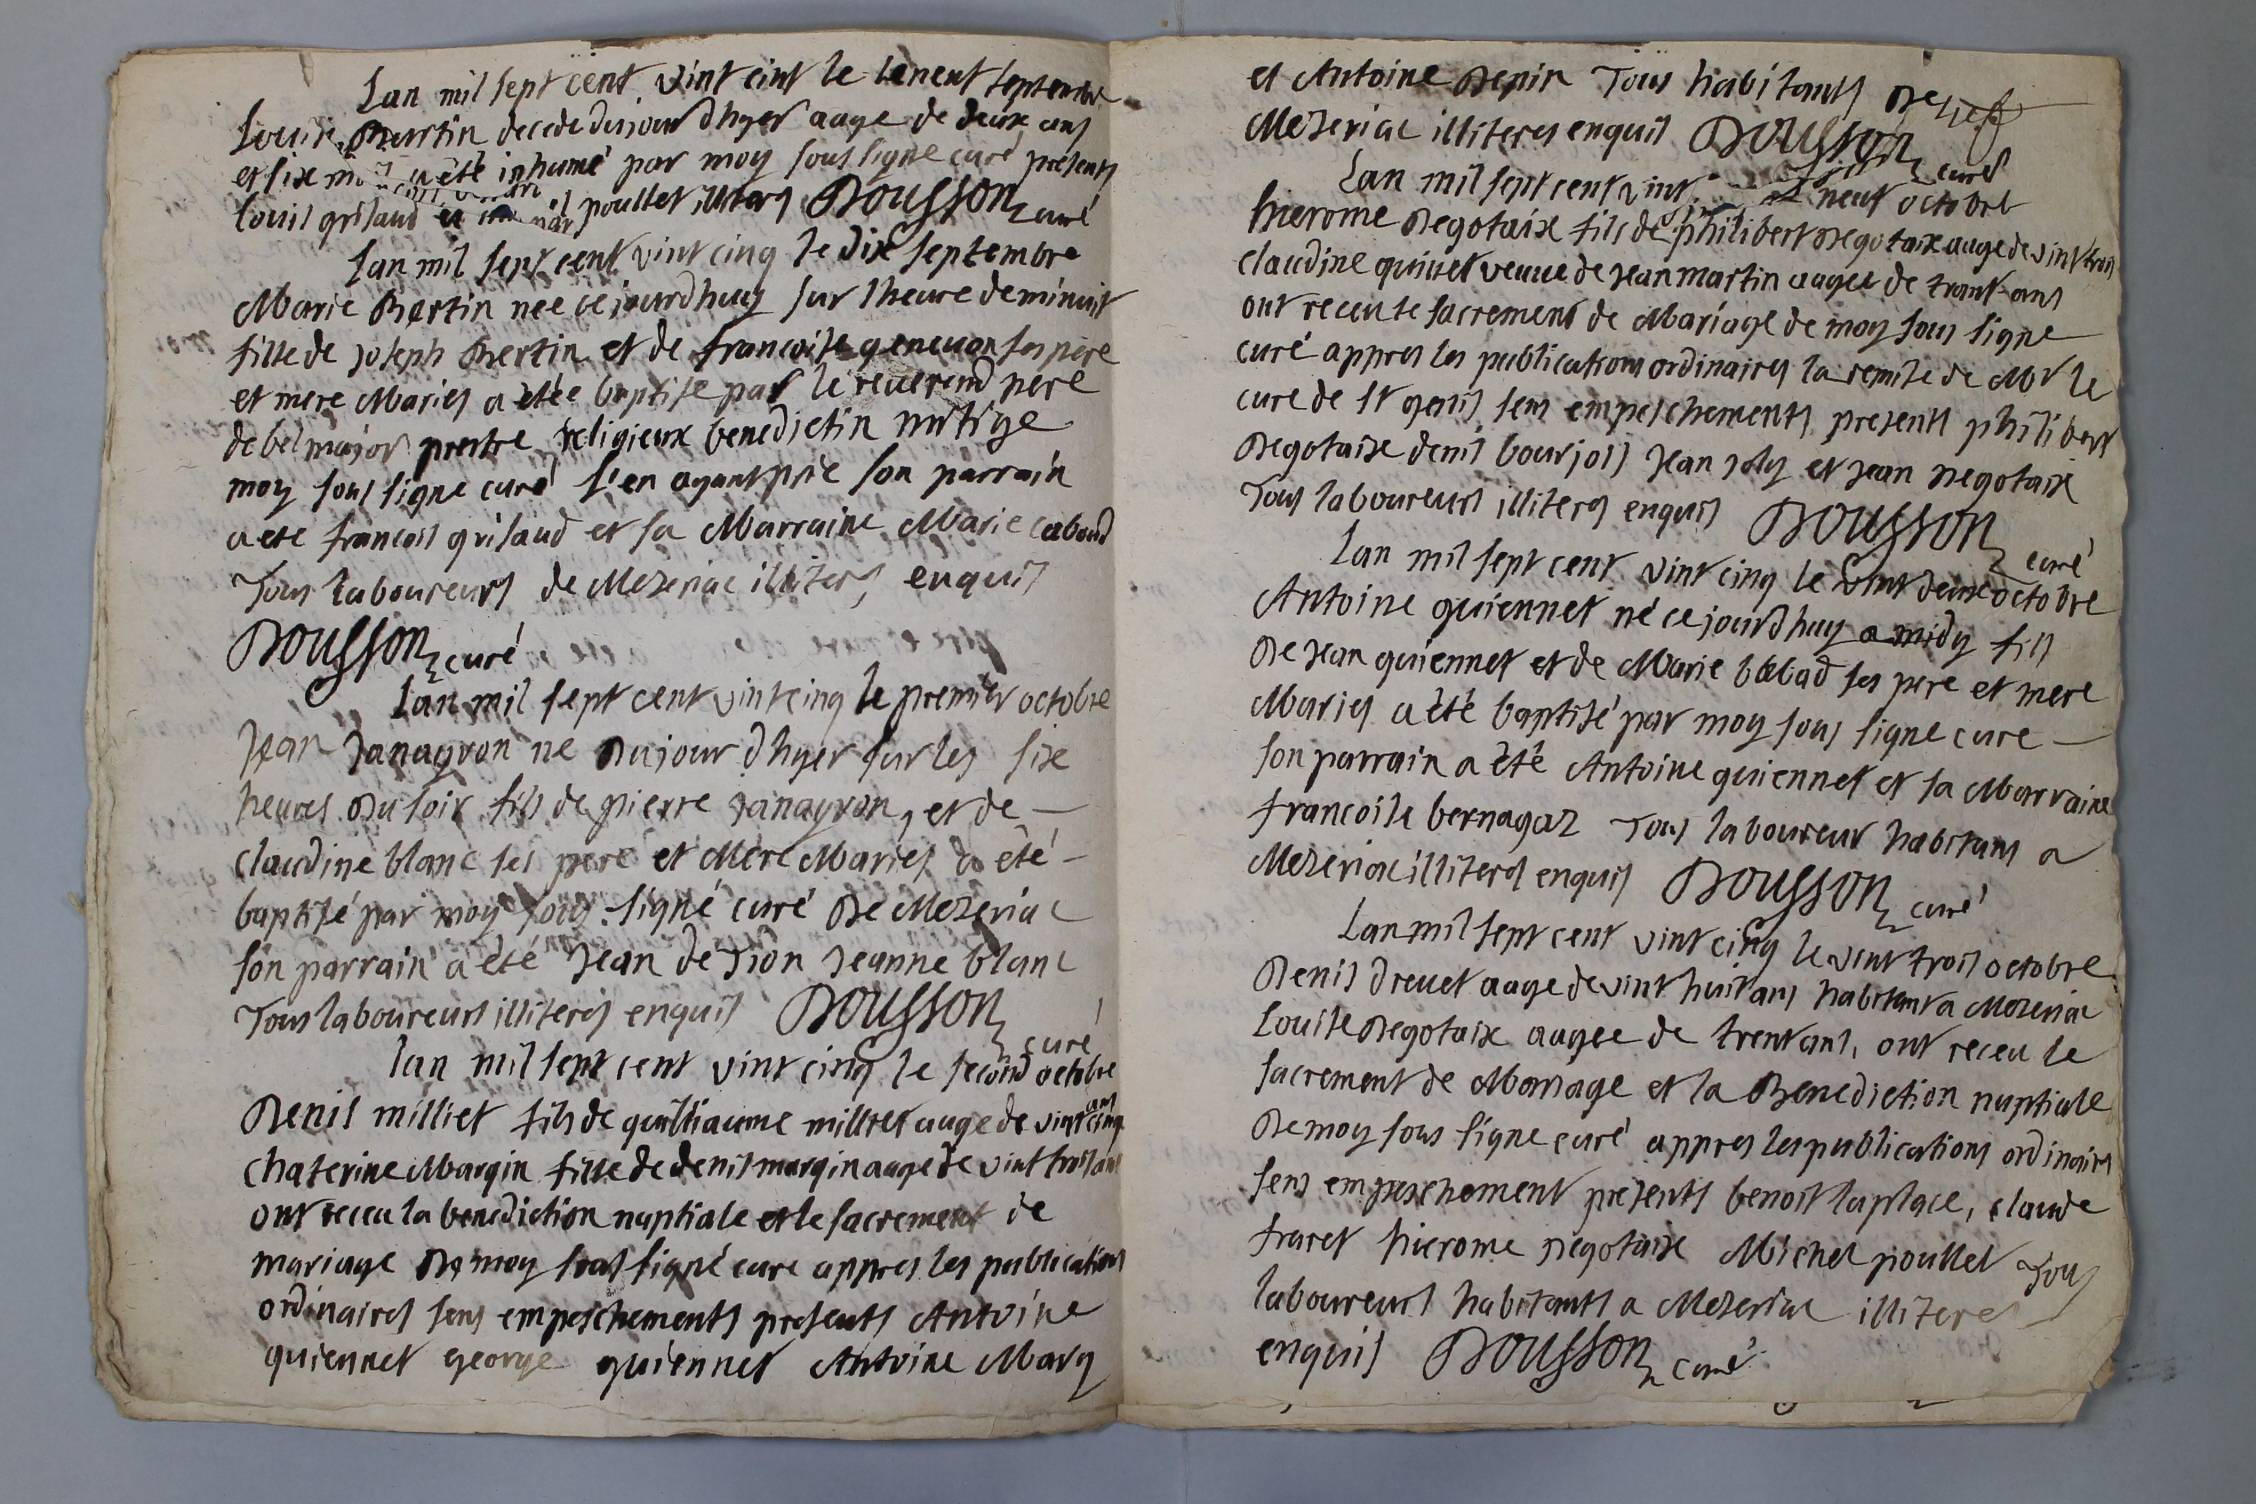 Lan mil sept cent vint cint le neuf septembre
Louis Bertin decede dujour dhyer aage de deux ans
et six a été inhumé par moy sous signe curé presents
louis grisaud et poullet illiters Dousson curé
Lan mil sept cent vint cinq le dix septembre
Marie Bertin nee cejourdhuy sur lheure deminuit
fille de joseph Bertin et de francoise geneuon ses pere
et mere Mariés a étée baptise par le reuerend pere
de bel major prestre religieux benedictin mitige
moy sous signe curé l'en ayant prié son parrain
a ete francois grisaud et sa Marraine Marie cabaud
Tous laboureurs de Mezeriac illiters enquis
Dousson curé
Lan mil sept cent vint cinq le premier octobre
Jean Janayron ne Dujour dhyer sur les six
heures Du soir fils de pierre Janayron, et de —
claudine blanc ses pere et Mere Mariés a été —
baptisé par moy sous signé curé De Mezeriac
son parrain a été Jean de Tion Jeanne blanc
Tous laboureurs illiterés enquis Dousson curé
lan mil sept cent vint cinq le second octobre
Denis milliet fils de guilliaume milliet aage de vint cinq ans
chaterine Margin fille de denis margin aage de vint trois ans
ont receu la benediction nuptiale et le sacrement de
mariage De moy sous signé cure appres les publications
ordinaires sens empeschements presents Antoine
quiennet george quiennet Antoine Marg
et Antoine Depin Tous habitants De
Mezeriac illiteres enquis Dousson curé
Lan mil sept cent vint neuf octobre
hierome Degotaix fils de philibert Degotaix aage de vint trois
claudine quiuet veuue de Jean martin aagee de trant ans
ont receu le sacrement de Mariage de moy sous signe
curé appres les publications ordinaires la remise de Mr le
cure de st genis sens empeschements presents philibert
Degotaix denis bourjois Jean joly et Jean Degotaix
Tous laboureurs illiterés enquis Dousson curé
Lan mil sept cent vint cinq le vint deux octobre
Antoine quiennet né cejourdhuy a midy fils
De Jean quiennet et de Marie babad ses pere et mere
Mariés a été baptisé par moy sous signe cure —
son parrain a été Antoine quiennet et sa Marraine
francoise bernagaz Tous laboureur habitans a
Mezeriac illiterés enquis Dousson curé
Lan mil sept cent vint cinq le vint trois octobre
Denis dreuet aage de vint huit ans habitant a Mezeriac
Louise Degotaix aagee de trent ans, ont receu le
sacrement de Mariage et la Benediction nuptiale
De moy sous signe curé appres les publications ordinaires
sens empeschement presents benoit laplace, claude
fraret hierome Degotaix Michel poullet Tous
laboureurs habitants a Mezeriac illiteres
enquis Dousson curé